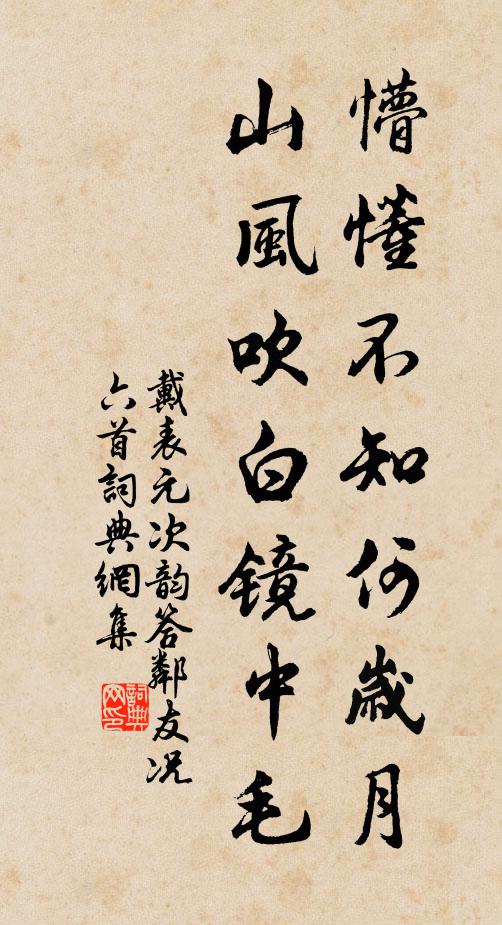 懵懂不知何歲月
山風吹白镜中毛
戴表元次韵答鄰友况
六首詞典網集
詞典网印